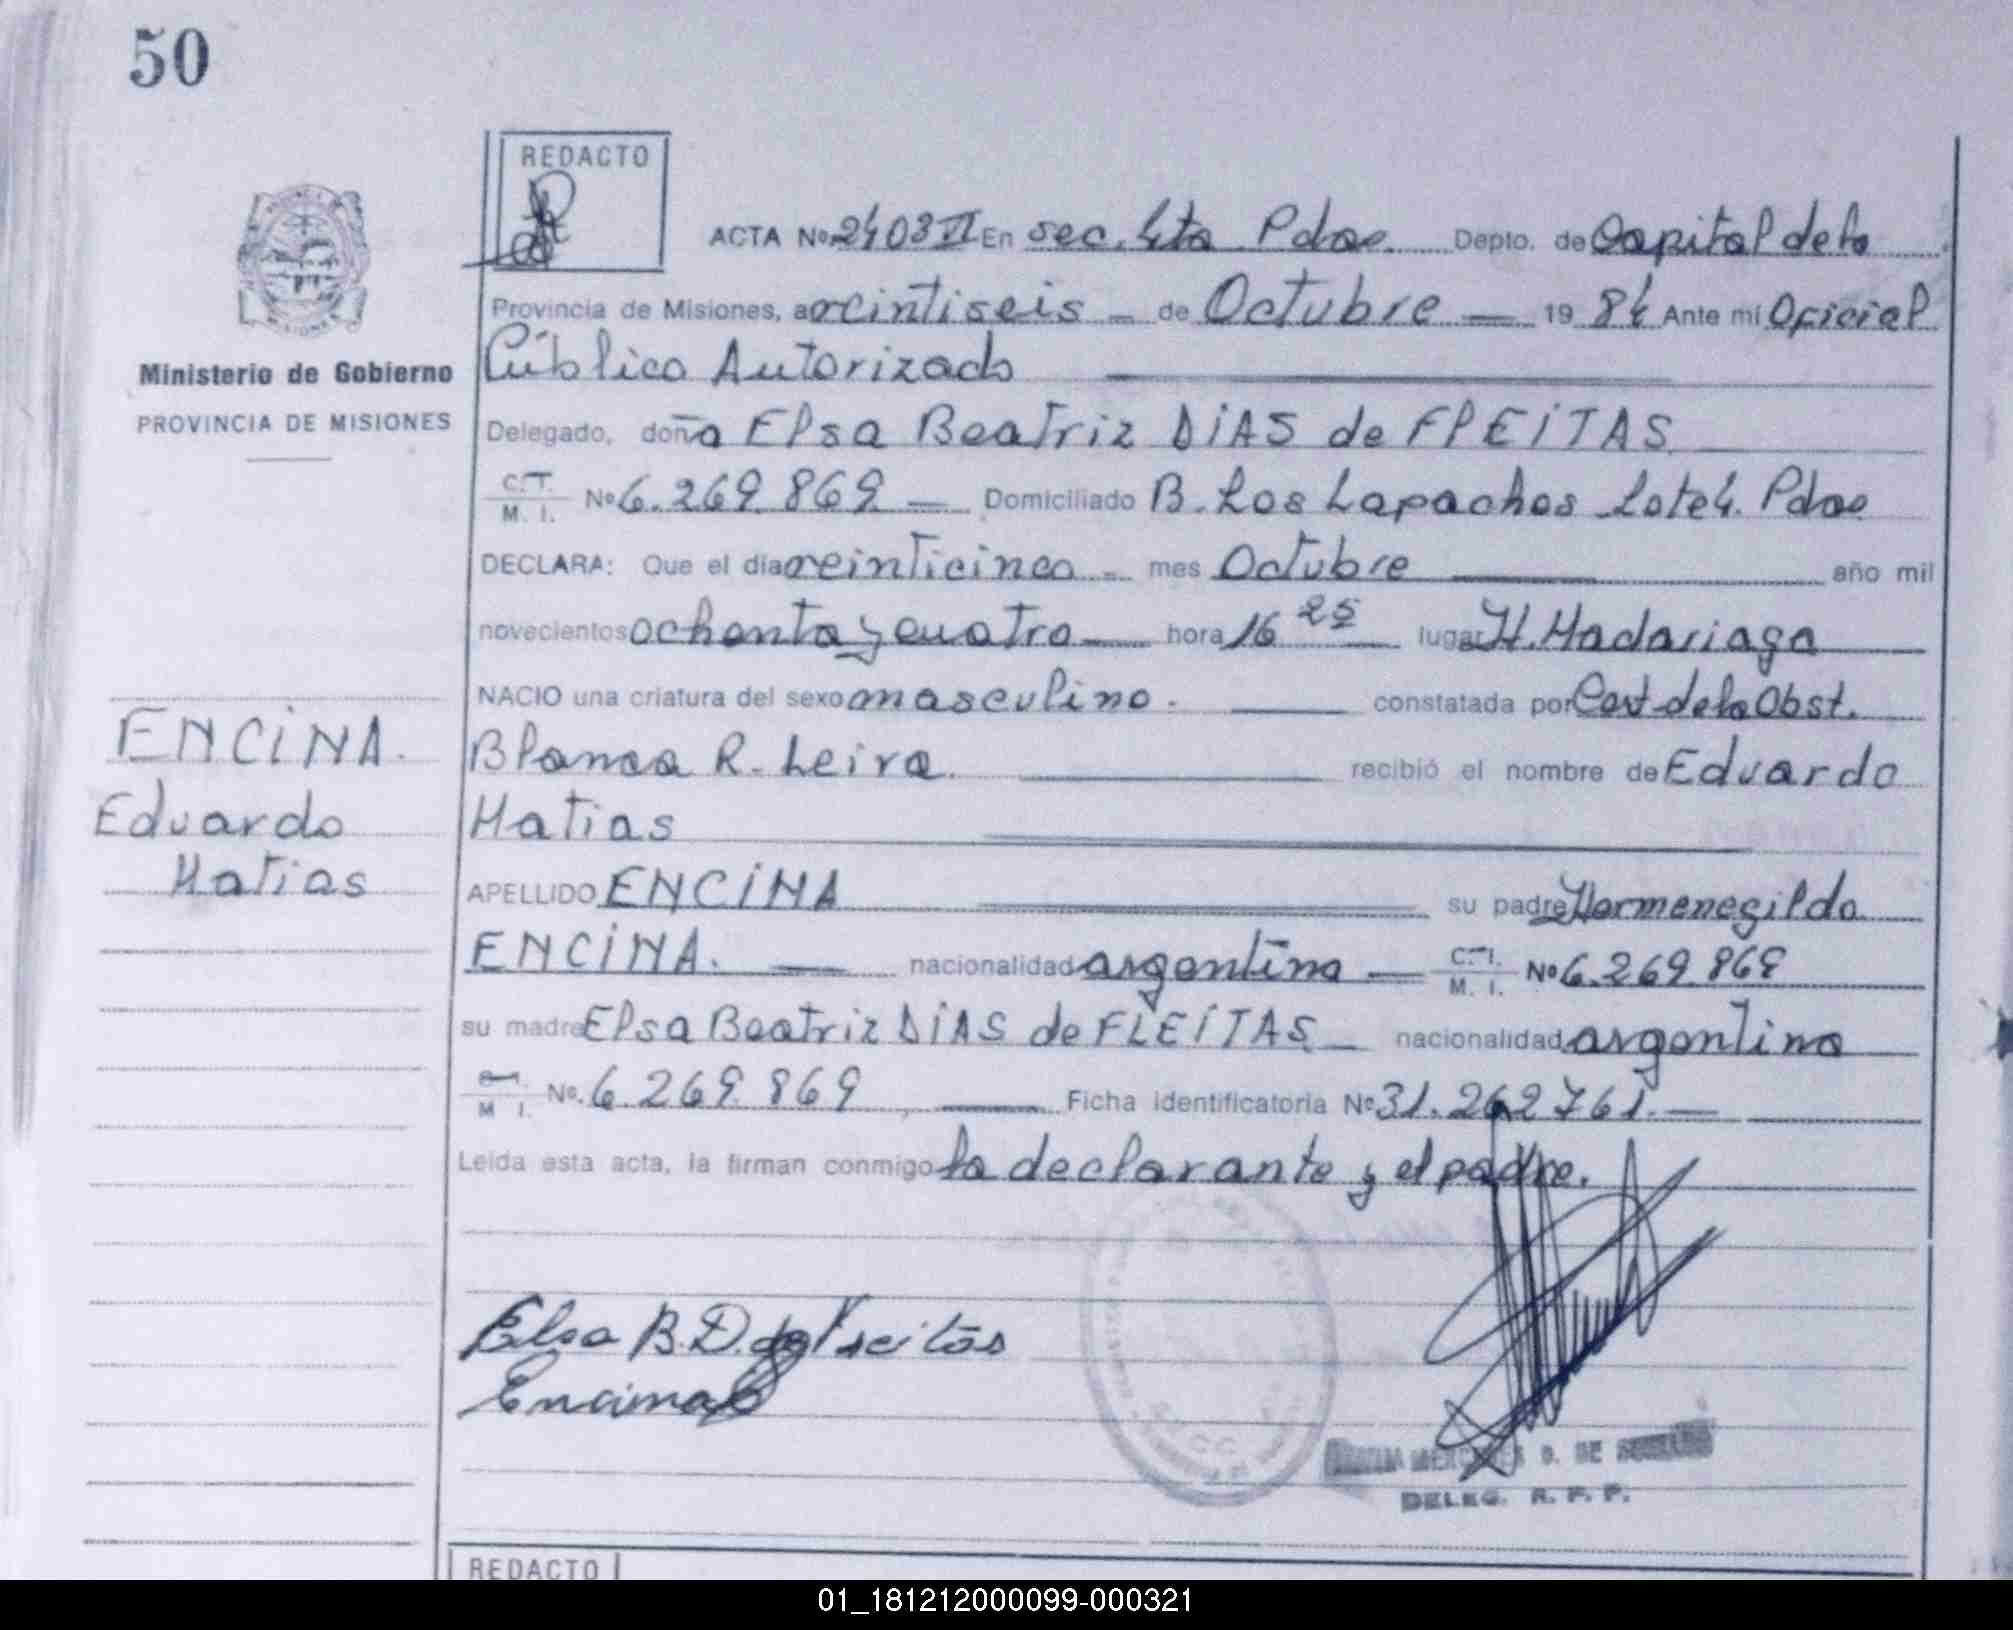 50
REDACTO
ACTA Nº 2403 II En sec. 4ta Pdas. Depto. de Capital de la
Provincia de Misiones, a veintiseis - de Octubre — 19 84 Ante mi Oficial
Público Autorizado
Ministerio de Gobierno
PROVINCIA DE MISIONES
Delegado, doña Elsa Beatriz DIAS de FLEITAS
C.I. M. I. Nº 6.269.869 — Domiciliado B. Los Lapachos Lote 4. Pdas
DECLARA: Que el dia veinticinco - mes Octubre año mil
novecientos ochenta y cuatro hora 16 25 lugar H. Madariaga
NACIO una criatura del sexo masculino. constatada por Cert de la Obst.
Blanca R. Leiva. recibió el nombre de Eduardo
Matias
ENCINA.
Eduardo
Matias
APELLIDO ENCINA su padre Hermenegildo
ENCINA. nacionalidad argentina — C.I. M. I. Nº 6.269.868
su madre Elsa Beatriz DIAS de FLEITAS nacionalidad argentina
M I. Nº. 6.269.869 Ficha identificatoria Nº 31.262761.
Leida esta acta, la firman conmigo la declarante y el padre.
Elsa B. D. de Freitas
Encina
D. DE
DELEG. R. P. P.
REDACTO
01_181212000099-000321